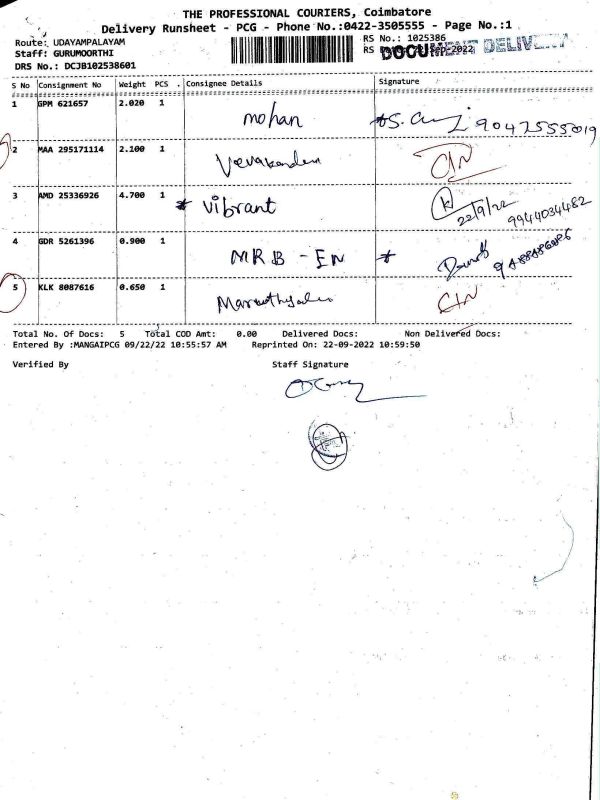 THE PROFESSIONAL COURIERS, Coimbatore
Delivery Runsheet - PCG - Phone No.:0422-3505555 - Page No.:1
Route: UDAYAMPALAYAM RS No.: 1025386
Staff: GURUMOORTHI RS 22-Sep-2022
DOCUMENT DELIVERY
DRS No.: DCJB102538601
S No Consignment No Weight PCS . Consignee Details Signature
1 GPM 621657 2.020 1 mohan
2 MAA 295171114 2.100 1
3 AMD 25336926 4.700 1 * vibrant 22/9/22 9944034482
4 GDR 5261396 0.900 1 MRB - EN *
5 KLK 8087616 0.650 1
Total No. Of Docs: 5 Total COD Amt: 0.00 Delivered Docs: Non Delivered Docs:
Entered By :MANGAIPCG 09/22/22 10:55:57 AM Reprinted On: 22-09-2022 10:59:50
Verified By Staff Signature